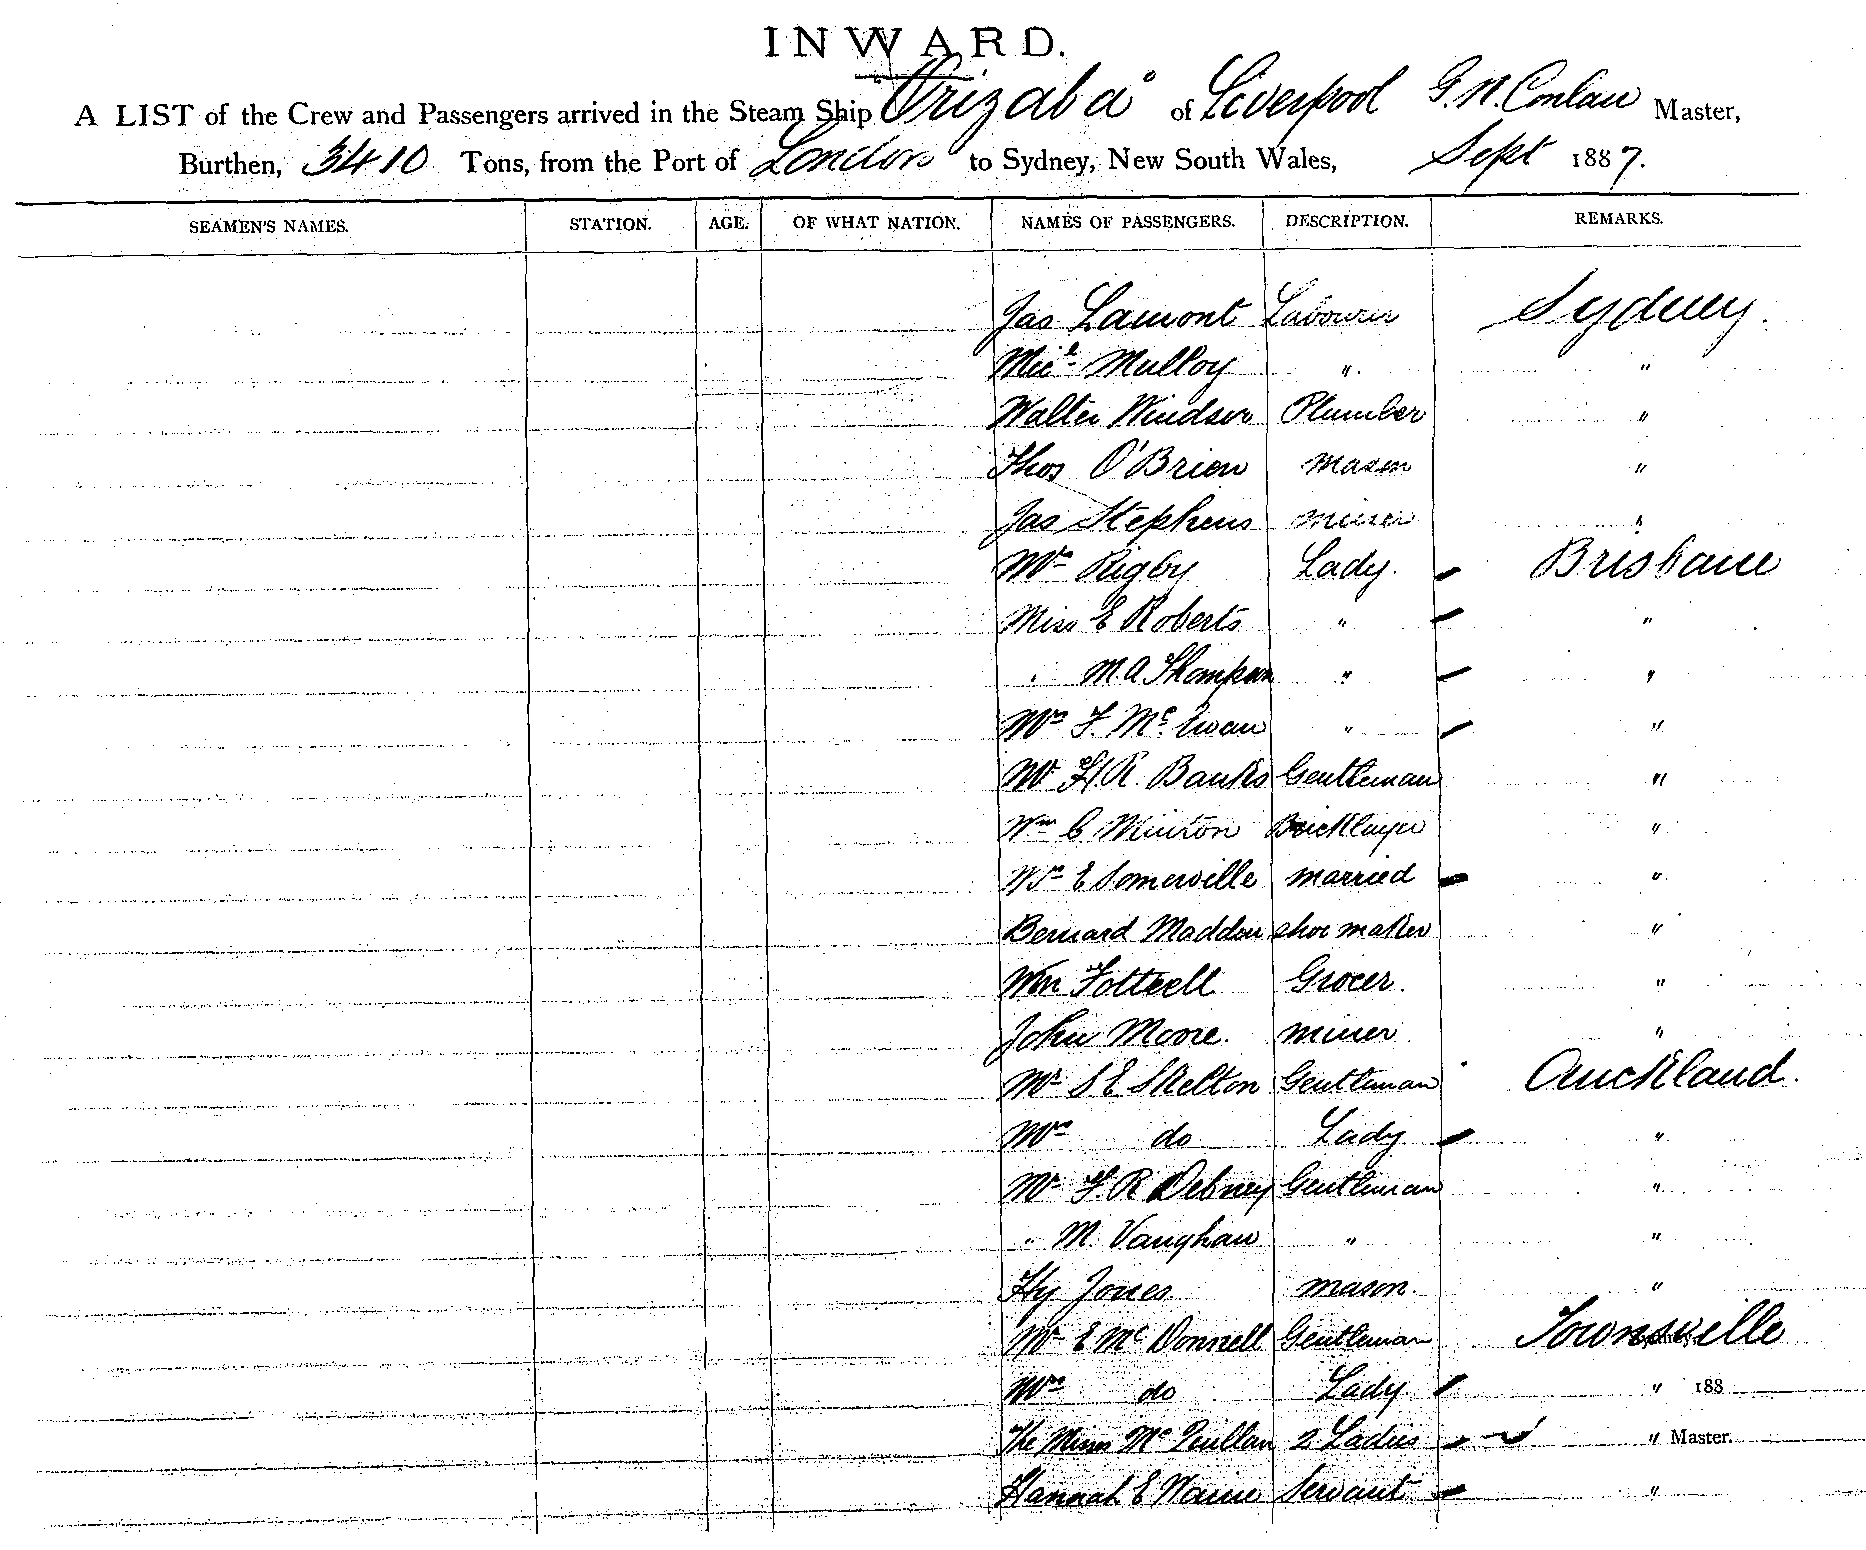 INWARD.
A LIST of the Crew and Passengers arrived in the Steam Ship "Orizaba" of Liverpool G. N. Conlan Master,
Burthen, 3410 Tons, from the Port of London to Sydney, New South Wales, Sept 1887.
SEAMEN'S NAMES. STATION. AGE. OF WHAT NATION. NAMES OF PASSENGERS. DESCRIPTION. REMARKS.
Jas Lamont Labourer Sydney.
Micl Mulloy " "
Walter Windsor Plumber "
Thos O'Brien mason "
Jas Stephens miner "
Mrs Rigby Lady. Brisbane
Miss E Roberts " "
" M.A. Thompson " "
Mrs F. McEwan " "
Mr H.R. Banks Gentleman "
Wm C Minton Bricklayer "
Mrs E Somerville married "
Bernard Madden shoe maker "
Wm Fottrell Grocer. "
John Moore. miner "
Mr S E Skelton Gentleman Auckland.
Mrs do Lady "
Mr F. R Debney Gentleman "
" M Vaughan " "
Hy Jones mason. "
Mr E McDonnell Gentleman Townsville
Mrs do Lady " 188
The Misses Mc 2 Ladies " Master.
Hannah E Servant "